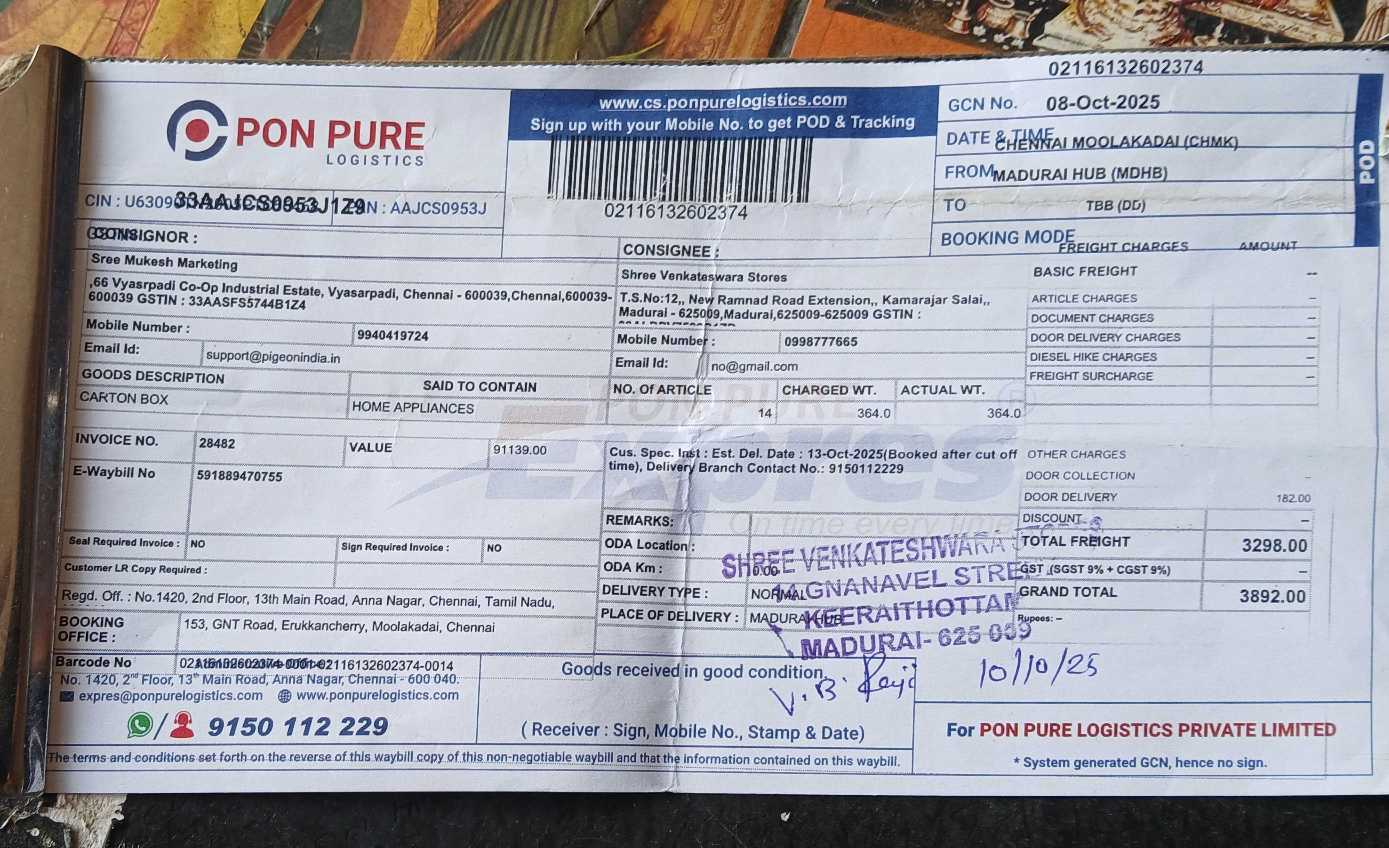 02116132602374
PON PURE
LOGISTICS
www.cs.ponpurelogistics.com
Sign up with your Mobile No. to get POD & Tracking
02116132602374
GCN No. 08-Oct-2025
DATE & TIME CHENNAI MOOLAKADAI (CHMK)
FROM MADURAI HUB (MDHB)
TO TBB (DD)
BOOKING MODE
POD
CIN : U6309 33AAJCS0953J1Z9 AAJCS0953J
CONSIGNOR :
Sree Mukesh Marketing
,66 Vyasrpadi Co-Op Industrial Estate, Vyasarpadi, Chennai - 600039,Chennai,600039-
600039 GSTIN : 33AASFS5744B1Z4
Mobile Number : 9940419724
Email Id: support@pigeonindia.in
CONSIGNEE :
Shree Venkateswara Stores
T.S.No:12,, New Ramnad Road Extension,, Kamarajar Salai,,
Madurai - 625009,Madurai,625009-625009 GSTIN :
Mobile Number : 0998777665
Email Id: no@gmail.com
FREIGHT CHARGES AMOUNT
BASIC FREIGHT --
ARTICLE CHARGES –
DOCUMENT CHARGES –
DOOR DELIVERY CHARGES –
DIESEL HIKE CHARGES –
FREIGHT SURCHARGE –
GOODS DESCRIPTION SAID TO CONTAIN
CARTON BOX HOME APPLIANCES
NO. Of ARTICLE CHARGED WT. ACTUAL WT.
14 364.0 364.0
INVOICE NO. 28482 VALUE 91139.00
E-Waybill No 591889470755
Cus. Spec. Inst : Est. Del. Date : 13-Oct-2025(Booked after cut off
time), Delivery Branch Contact No.: 9150112229
PON PURE
Expres
On time every time
OTHER CHARGES
DOOR COLLECTION –
DOOR DELIVERY 182.00
DISCOUNT –
TOTAL FREIGHT 3298.00
GST (SGST 9% + CGST 9%) –
GRAND TOTAL 3892.00
Rupees: –
REMARKS:
ODA Location :
ODA Km : 0.00
DELIVERY TYPE : NORMAL
PLACE OF DELIVERY : MADURAI HUB
SHREE VENKATESHWARA
GNANAVEL STRE
KEERAITHOTTAM
MADURAI- 625 009
Seal Required Invoice : NO Sign Required Invoice : NO
Customer LR Copy Required :
Regd. Off. : No.1420, 2nd Floor, 13th Main Road, Anna Nagar, Chennai, Tamil Nadu,
BOOKING OFFICE : 153, GNT Road, Erukkancherry, Moolakadai, Chennai
Barcode No 02116132602374-0001-02116132602374-0014
No. 1420, 2nd Floor, 13th Main Road, Anna Nagar, Chennai - 600 040.
expres@ponpurelogistics.com www.ponpurelogistics.com
9150 112 229
Goods received in good condition.
V. B.
10/10/25
( Receiver : Sign, Mobile No., Stamp & Date)
For PON PURE LOGISTICS PRIVATE LIMITED
* System generated GCN, hence no sign.
The terms and conditions set forth on the reverse of this waybill copy of this non-negotiable waybill and that the information contained on this waybill.